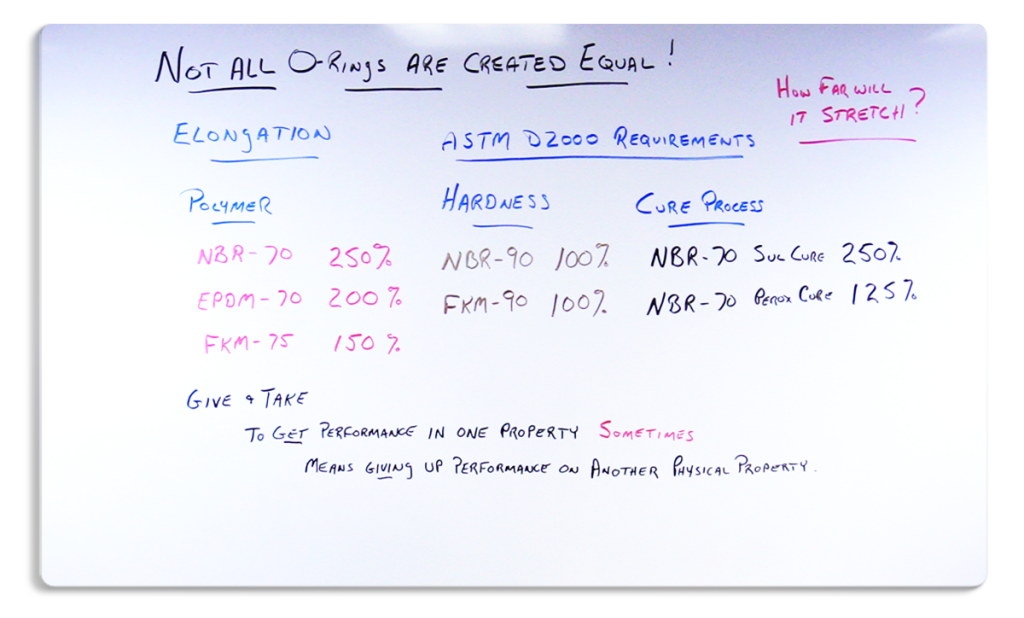 NOT ALL O-RINGS ARE CREATED EQUAL!
HOW FAR WILL
IT STRETCH?
ELONGATION
ASTM D2000 REQUIREMENTS
POLYMER
NBR-70 250%
EPDM-70 200%
FKM-75 150%
HARDNESS
NBR-90 100%
FKM-90 100%
CURE PROCESS
NBR-70 SUL CURE 250%
NBR-70 PEROX CURE 125%
GIVE & TAKE
TO GET PERFORMANCE IN ONE PROPERTY SOMETIMES
MEANS GIVING UP PERFORMANCE ON ANOTHER PHYSICAL PROPERTY.